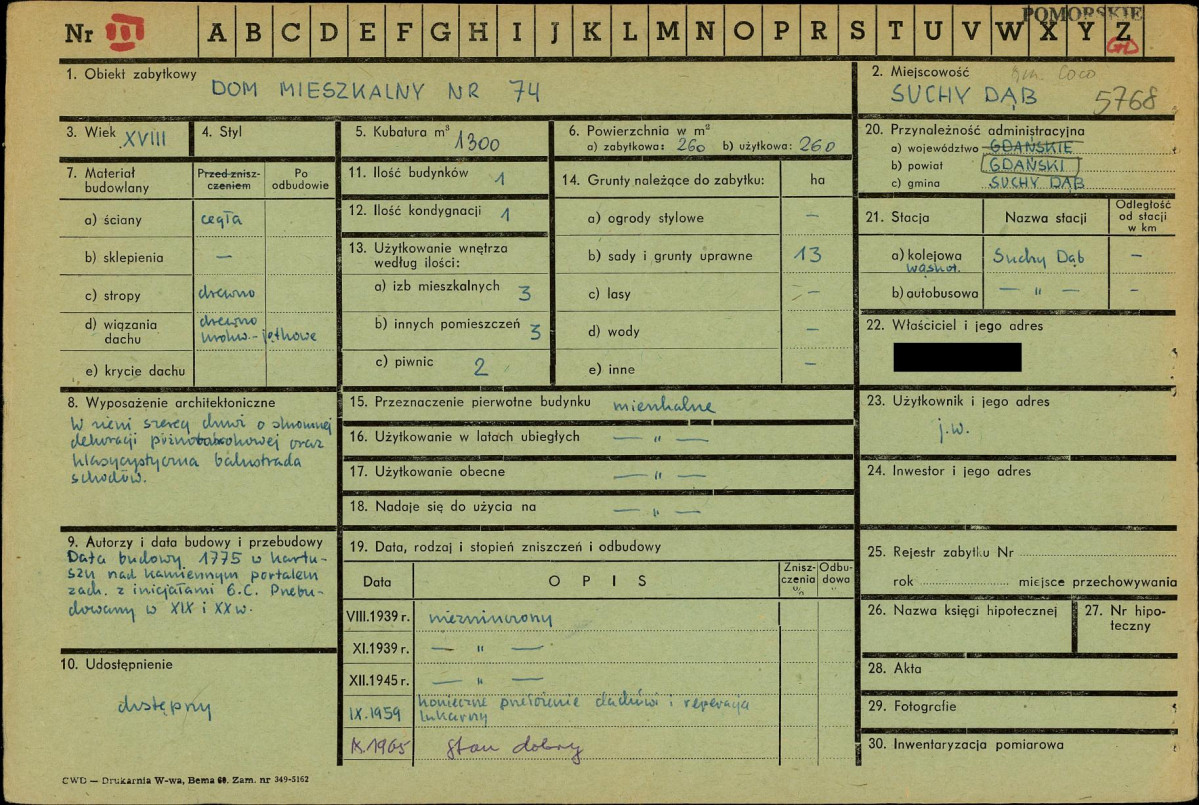 POMORSKIE
Nr III A B C D E F G H I J K L M N O P R S T U V W X Y Z
1. Obiekt zabytkowy
DOM MIESZKALNY NR 74
2. Miejscowość
SUCHY DĄB 5768
3. Wiek XVIII
4. Styl
5. Kubatura m³ 1300
6. Powierzchnia w m²
a) zabytkowa: 260 b) użytkowa: 260
7. Materiał budowlany
Przed znisz-
czeniem
Po
odbudowie
a) ściany cegła
b) sklepienia —
c) stropy drewno
d) wiązania dachu drewno
krokw.-jętkowe
e) krycie dachu
8. Wyposażenie architektoniczne
W sieni szereg drzwi o skromnej
dekoracji późnobarokowej oraz
klasycystyczna balustrada
schodów.
9. Autorzy i data budowy i przebudowy
Data budowy 1775 w kartu-
szu nad kamiennym portalem
zach. z inicjałami G.C. Przebu-
dowany w XIX i XX w.
10. Udostępnienie
dostępny
11. Ilość budynków 1
12. Ilość kondygnacji 1
13. Użytkowanie wnętrza
według ilości:
a) izb mieszkalnych 3
b) innych pomieszczeń 3
c) piwnic 2
14. Grunty należące do zabytku: ha
a) ogrody stylowe —
b) sady i grunty uprawne 13
c) lasy —
d) wody —
e) inne —
15. Przeznaczenie pierwotne budynku mieszkalne
16. Użytkowanie w latach ubiegłych — " —
17. Użytkowanie obecne — " —
18. Nadaje się do użycia na — " —
19. Data, rodzaj i stopień zniszczeń i odbudowy
Data OPIS Znisz-
czenia
%
Odbu-
dowa
VIII.1939 r. niezniszczony
XI.1939 r. — " —
XII.1945 r. — " —
IX.1959 konieczne przełożenie dachówki i reperacja
lukarny
IX.1965 stan dobry
20. Przynależność administracyjna
a) województwo GDAŃSKIE
b) powiat GDAŃSKI
c) gmina SUCHY DĄB
21. Stacja Nazwa stacji Odległość
od stacji
w km
a) kolejowa Suchy Dąb —
wąskot.
b) autobusowa — " — —
22. Właściciel i jego adres
23. Użytkownik i jego adres
j.w.
24. Inwestor i jego adres
25. Rejestr zabytku Nr
rok miejsce przechowywania
26. Nazwa księgi hipotecznej
27. Nr hipo-
teczny
28. Akta
29. Fotografie
30. Inwentaryzacja pomiarowa
CWD — Drukarnia W-wa, Bema 60. Zam. nr 349-5162